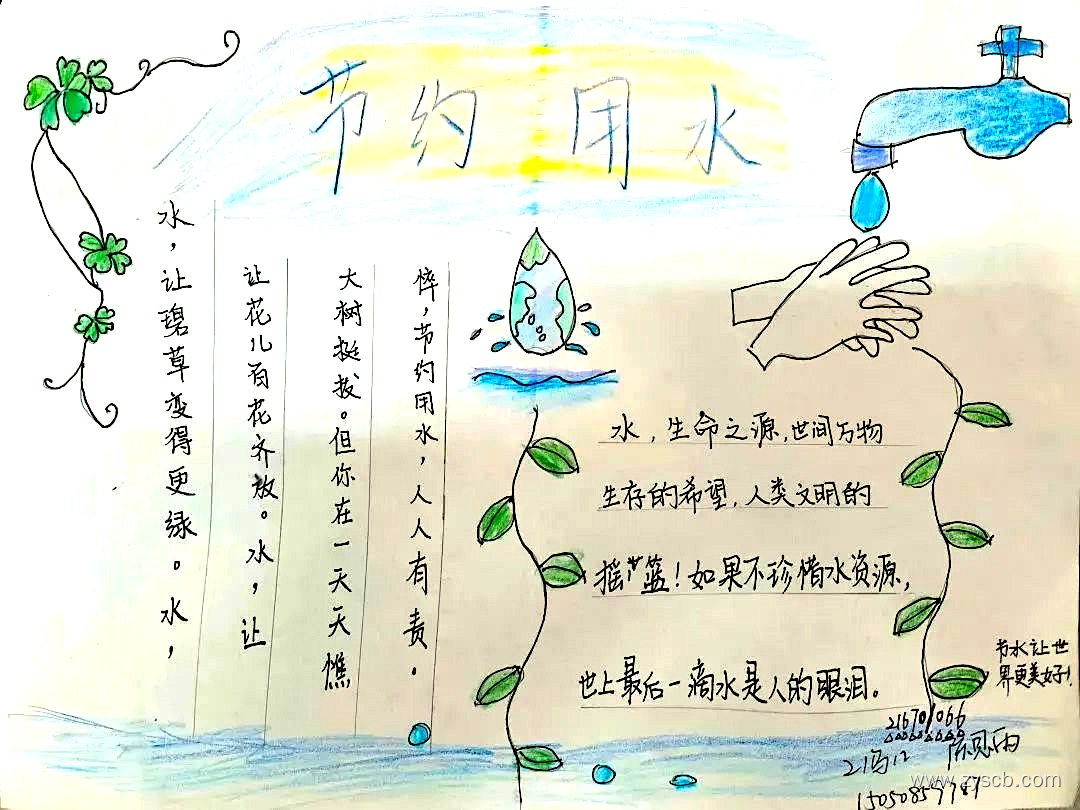 节约用水
水，让碧草变得更绿。水，
让花儿百花齐放。水，让
大树挺拔。但你在一天天憔
悴，节约用水，人人有责。
水，生命之源，世间万物
生存的希望，人类文明的
摇篮！如果不珍惜水资源，
世上最后一滴水是人的眼泪。
节水让世
界更美好！
www.zyscb.com